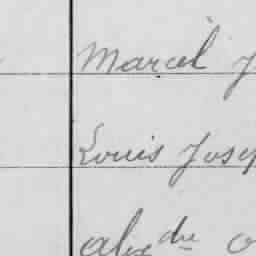 Marcel J
Louis Josep
alexdre